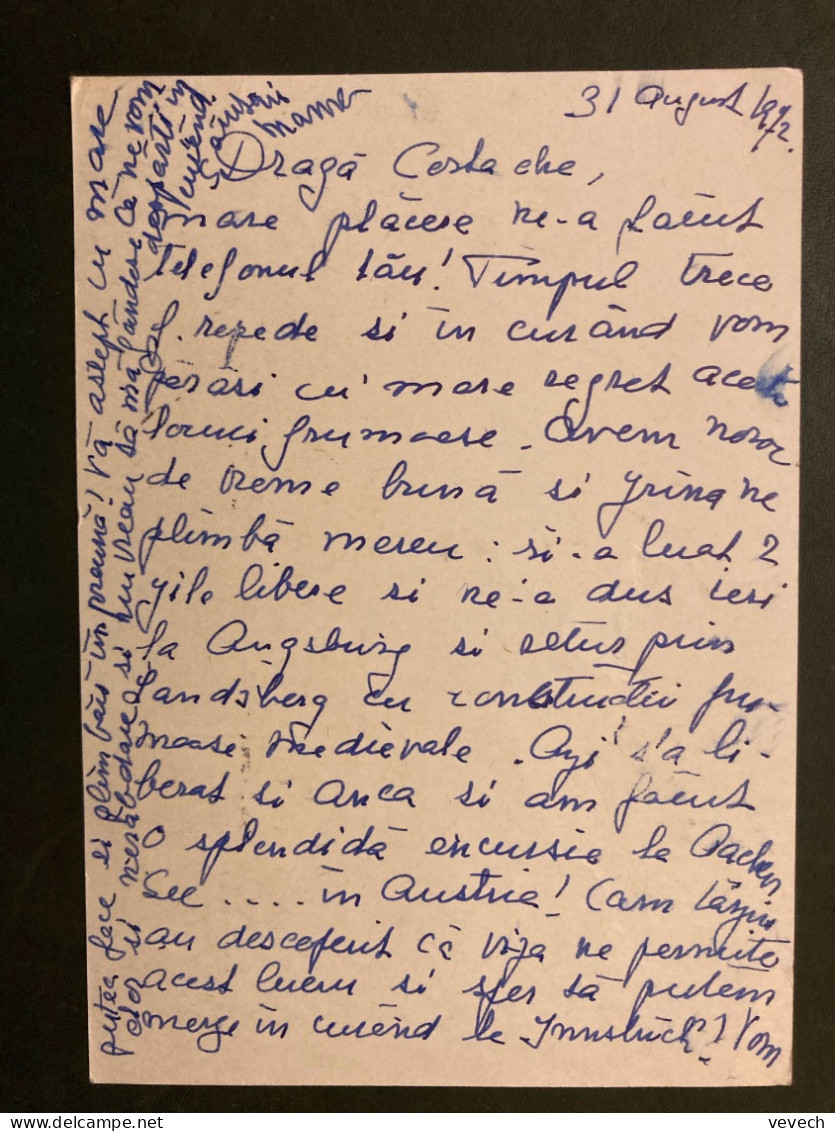 31 August 1972.
Dragă Costache,
mare plăcere ne-a făcut
telefonul tău! Timpul trece
repede si în curând vom
părăsi cu mare regret aceste
locuri frumoase. Avem noroc
de vreme bună si Irina ne
plimbă mereu: si-a luat 2
zile libere si ne-a dus ieri
la Augsburg si retur prin
Landsberg cu constructii fru-
moase medievale. Azi s'a li-
berat si Anca si am făcut
o splendidă excursie la Aachen
See .... în Austria! Cam târziu
au descoperit că viza ne permite
acest lucru si sper să putem
merge în curând la Innsbruck! Vom
putea face si plimbări împreună! Vă astept cu mare
dor si nerăbdare si nu vreau să mă gândesc că ne vom
despărti în
curând.
Sărutări
Mama
vevech